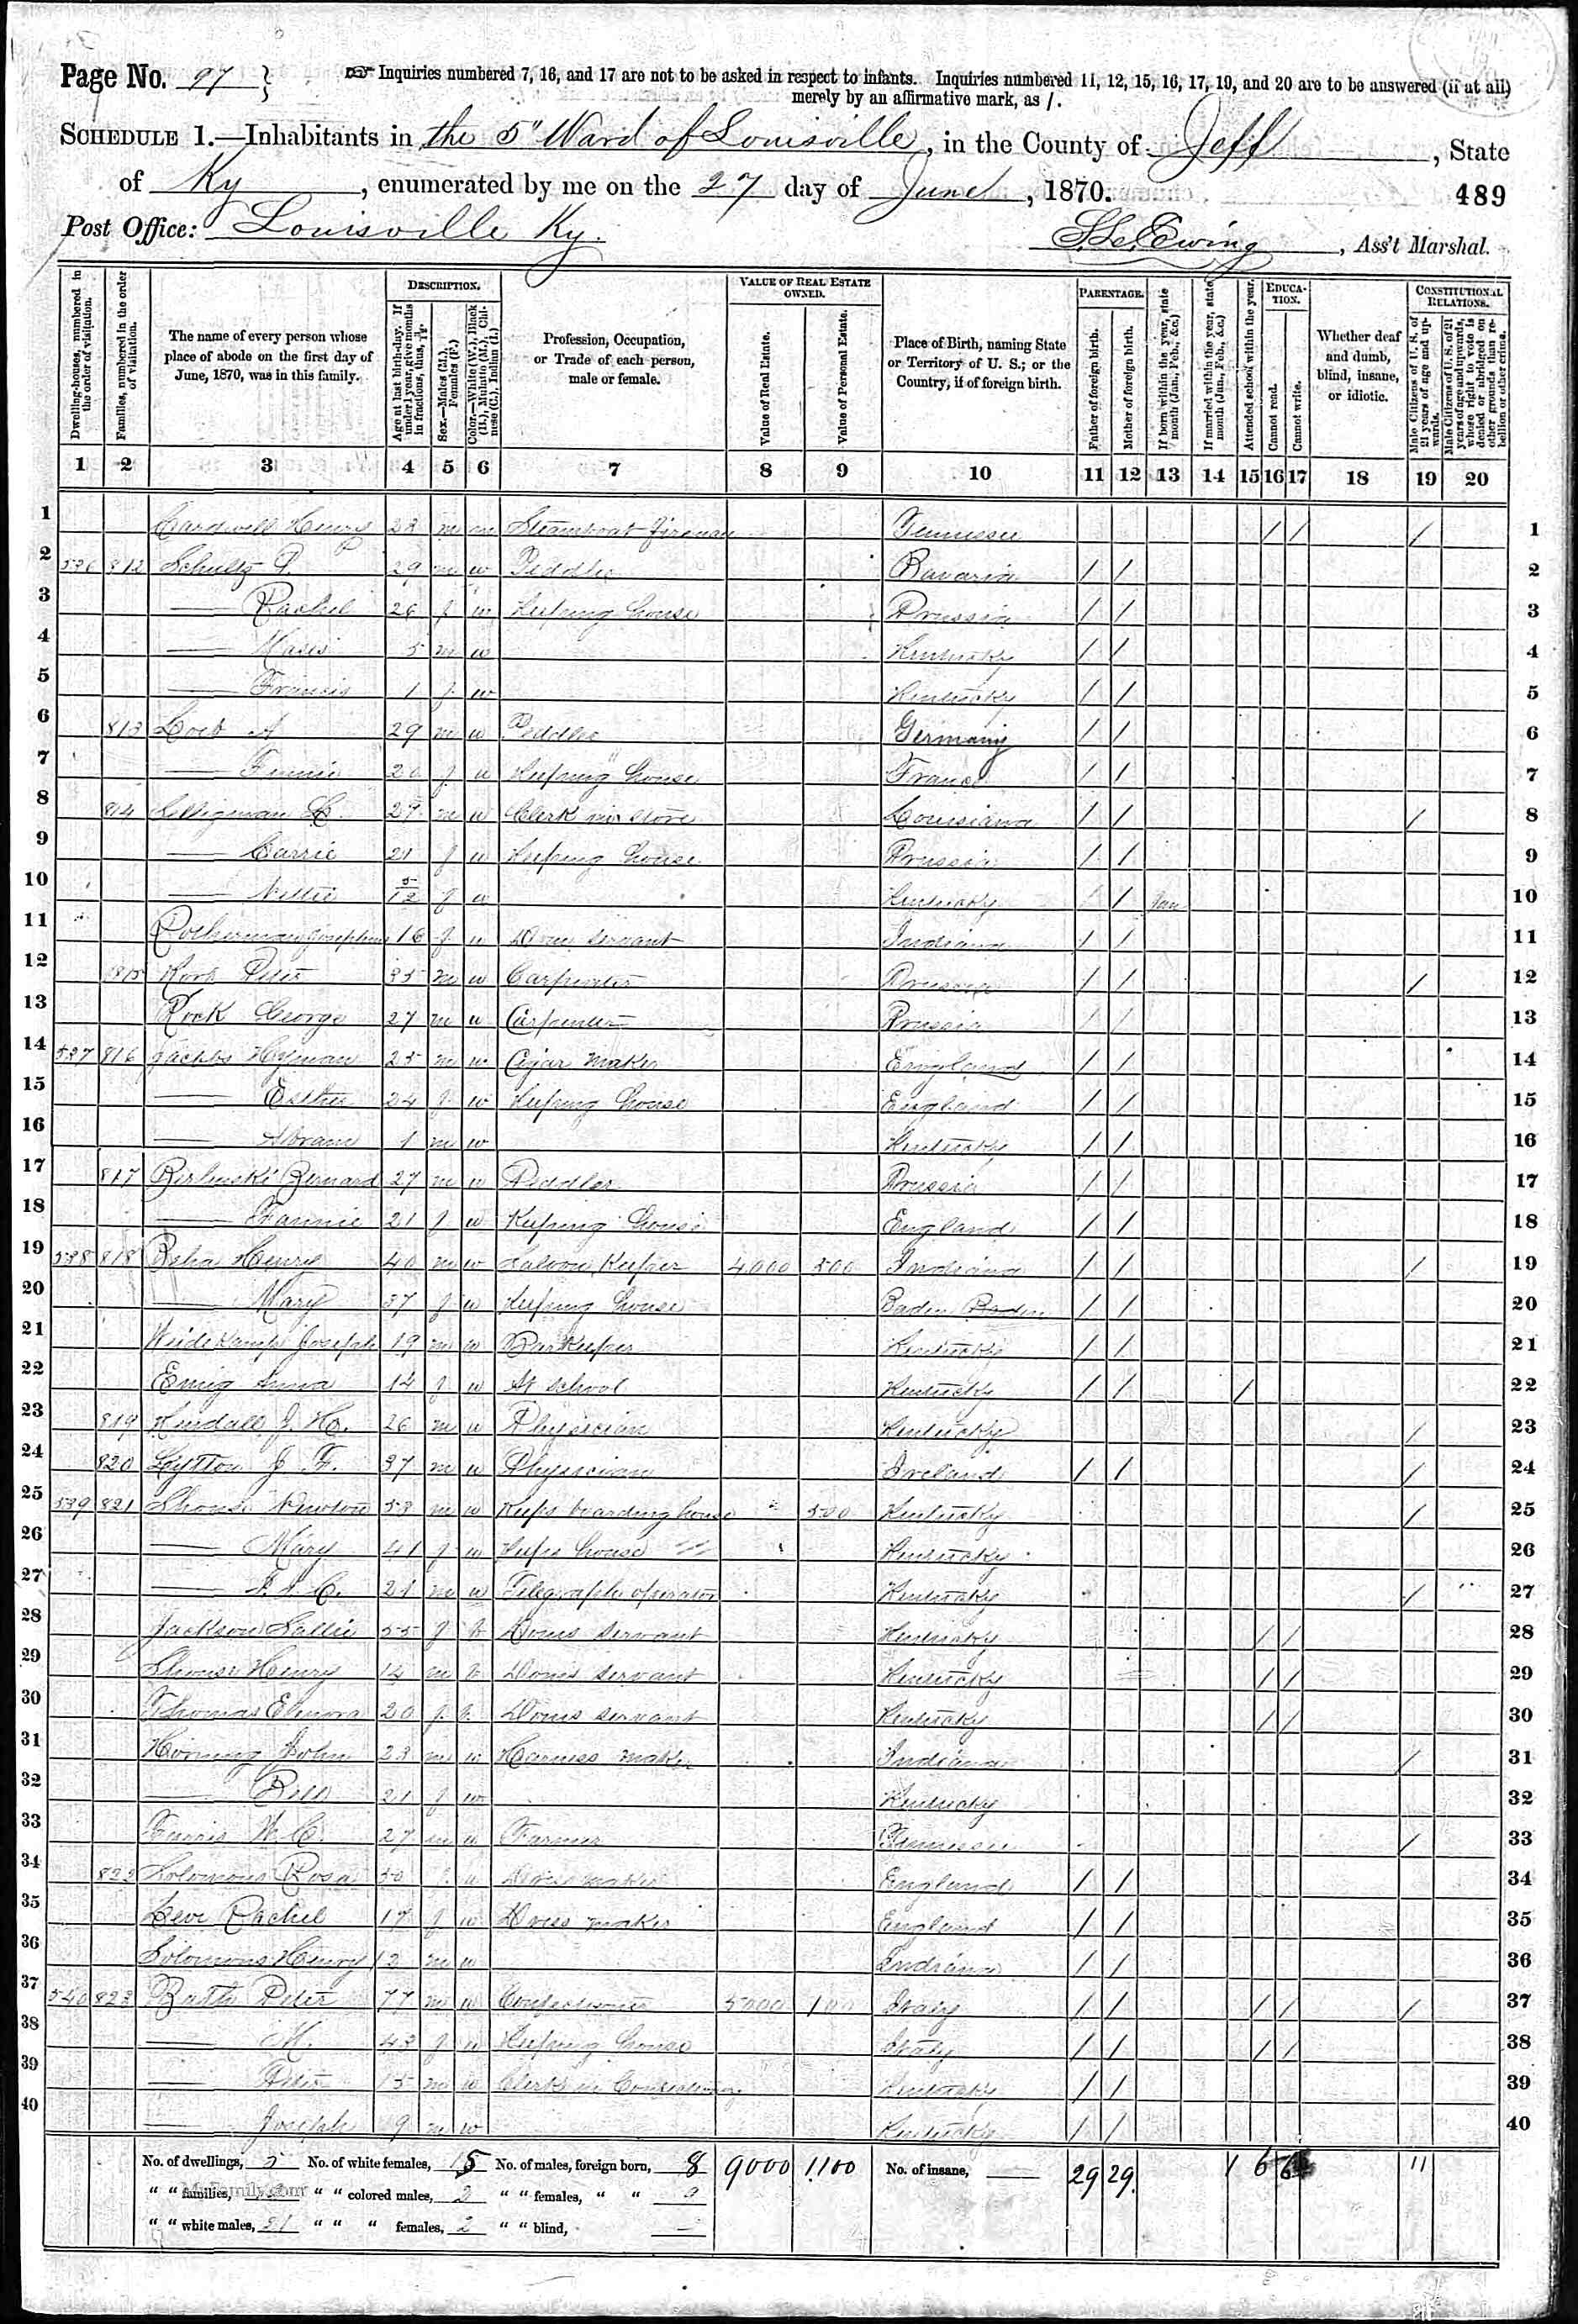 Page No. 97 } ☞ Inquiries numbered 7, 16, and 17 are not to be asked in respect to infants. Inquiries numbered 11, 12, 15, 16, 17, 19, and 20 are to be answered (if at all)
merely by an affirmative mark, as /.
SCHEDULE 1.—Inhabitants in the 5" Ward of Louisville, in the County of Jeff, State
of Ky, enumerated by me on the 27 day of June, 1870. 489
Post Office: Louisville Ky. Ewing, Ass't Marshal.
Dwelling-houses, numbered in the order of visitation.
Families, numbered in the order of visitation.
The name of every person whose place of abode on the first day of June, 1870, was in this family.
DESCRIPTION.
Age at last birth-day. If under 1 year, give months in fractions, thus, 3/12.
Sex.—Males (M.), Females (F.)
Color.—White (W.), Black (B.), Mulatto (M.), Chinese (C.), Indian (I.)
Profession, Occupation, or Trade of each person, male or female.
VALUE OF REAL ESTATE OWNED.
Value of Real Estate.
Value of Personal Estate.
Place of Birth, naming State or Territory of U. S.; or the Country, if of foreign birth.
PARENTAGE.
Father of foreign birth.
Mother of foreign birth.
If born within the year, state month (Jan., Feb., &c.)
If married within the year, state month (Jan., Feb., &c.)
Attended school within the year.
EDUCATION.
Cannot read.
Cannot write.
Whether deaf and dumb, blind, insane, or idiotic.
CONSTITUTIONAL RELATIONS.
Male Citizens of U. S. of 21 years of age and upwards.
Male Citizens of U. S. of 21 years of age and upwards, whose right to vote is denied or abridged on other grounds than rebellion or other crime.
1 2 3 4 5 6 7 8 9 10 11 12 13 14 15 16 17 18 19 20
1 Cardwell Henry 23 m m Steamboat fireman Tennessee / / / 1
2 536 812 Schultz P. 29 m w Peddler Bavaria / / 2
3 — Rachel 26 f w Keeping house Prussia / / 3
4 — 5 m w Kentucky / / 4
5 — Francis 1 f w Kentucky / / 5
6 813 Loeb A 29 m w Peddler Germany / / 6
7 — Fannie 20 f w Keeping house France / / 7
8 814 Selligman 27 m w Clerk in store Louisiana / / / 8
9 — Carrie 21 f w Keeping house Prussia / / 9
10 — Nellie 5/12 f w Kentucky / / Jan 10
11 Josephine 16 f w Dom servant Indiana / / 11
12 815 Peter 35 m w Carpenter Prussia / / / 12
13 Rock George 27 m w Carpenter Prussia / / 13
14 537 816 Jacobs Hyman 25 m w Cigar maker England / / 14
15 — Esther 24 f w Keeping house England / / 15
16 — Abram 1 m w Kentucky / / 16
17 817 Berlinski Bernard 27 m w Peddler Prussia / / 17
18 — Fannie 21 f w Keeping house England / / 18
19 538 818 Henry 40 m w Saloon Keeper 4000 500 Indiana / / / 19
20 — Mary 37 f w Keeping house Baden Baden / / 20
21 Weidekamp Joseph 19 m w Barkeeper Kentucky / / 21
22 Emig Anna 14 f w At school Kentucky / / / 22
23 819 Kendall J. H. 26 m w Physician Kentucky / 23
24 820 Lytton J F. 37 m w Physician Ireland / / / 24
25 539 821 Shouse Newton 53 m w Keeps boarding house 500 Kentucky / 25
26 — Mary 41 f w Keeps house Kentucky 26
27 — 21 m w Telegraph operator Kentucky / 27
28 Jackson Sallie 55 f b Domes servant Kentucky / / 28
29 Shouse Henry 14 m b Domes servant Kentucky / / 29
30 Thomas Elenora 20 f b Domes servant Kentucky / / 30
31 Horning John 23 m w Harness maker Indiana / 31
32 — Bell 21 f w Kentucky 32
33 W. C. 27 m w Farmer Tennessee / 33
34 822 Solomons Rosa 50 f w Dress maker England / / 34
35 Levi Rachel 17 f w Dress maker England / / 35
36 Solomons Henry 13 m w Indiana / / 36
37 540 823 Peter 77 m w Confectioner 5000 100 Italy / / / / / 37
38 — M. 43 f w Keeping house Italy / / / / 38
39 — Peter 15 m w Clerk in Confectionery Kentucky / / 39
40 — Joseph 9 m w Kentucky / / 40
No. of dwellings, 5 No. of white females, 15 No. of males, foreign born, 8 9000 1100 No. of insane, — 29 29 1 6 6 11
" " families, " " colored males, 2 " " females, " " 9
" " white males, 21 " " " females, 2 " " blind, —
MyFamily.com